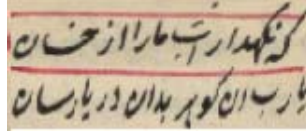 که نگهدار آب ما را از خسان
یا رب آن گوهر بدان دریا رسان